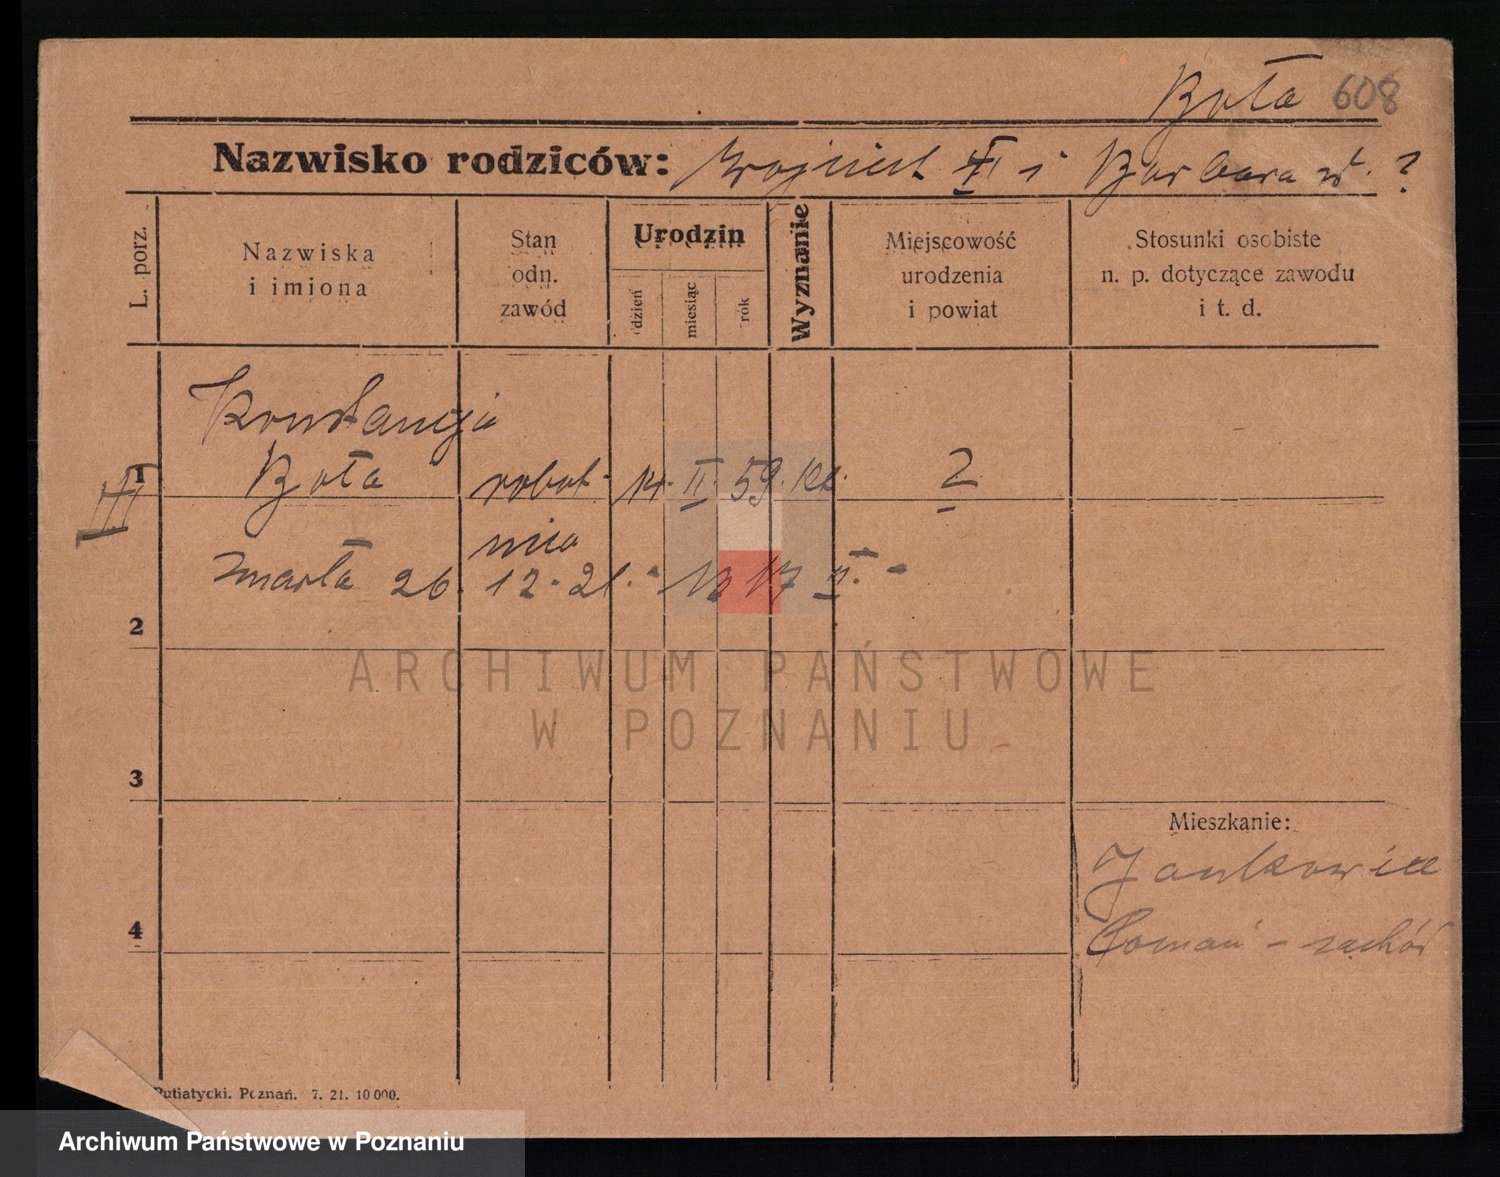 Bota 608
Nazwisko rodziców: Wojciech i Barbara ?
L. porz.
Nazwiska
i imiona
Stan
odn.
zawód
Urodzin
dzień
miesiąc
rok
Wyznanie
Miejscowość
urodzenia
i powiat
Stosunki osobiste
n. p. dotyczące zawodu
i t. d.
Konstancja
1 Bota robot- 14. II. 59. kt. ?
nica
zmarła 26. 12. 21. -
2
3
4
Mieszkanie:
Jankowice
Poznań - zachód
Putiatycki. Poznań. 7. 21. 10 000.
ARCHIWUM PAŃSTWOWE
W POZNANIU
Archiwum Państwowe w Poznaniu